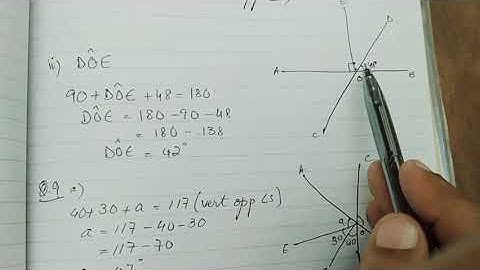 ii) DÔE
90 + DÔE + 48 = 180
DÔE = 180 - 90 - 48
= 180 - 138
DÔE = 42°
E
D
A
48°
O
B
C
Q.9 a)
40 + 30 + a = 117 (vert opp ∠s)
a = 117 - 40 - 30
= 117 - 70
A
C
a
30
40
E